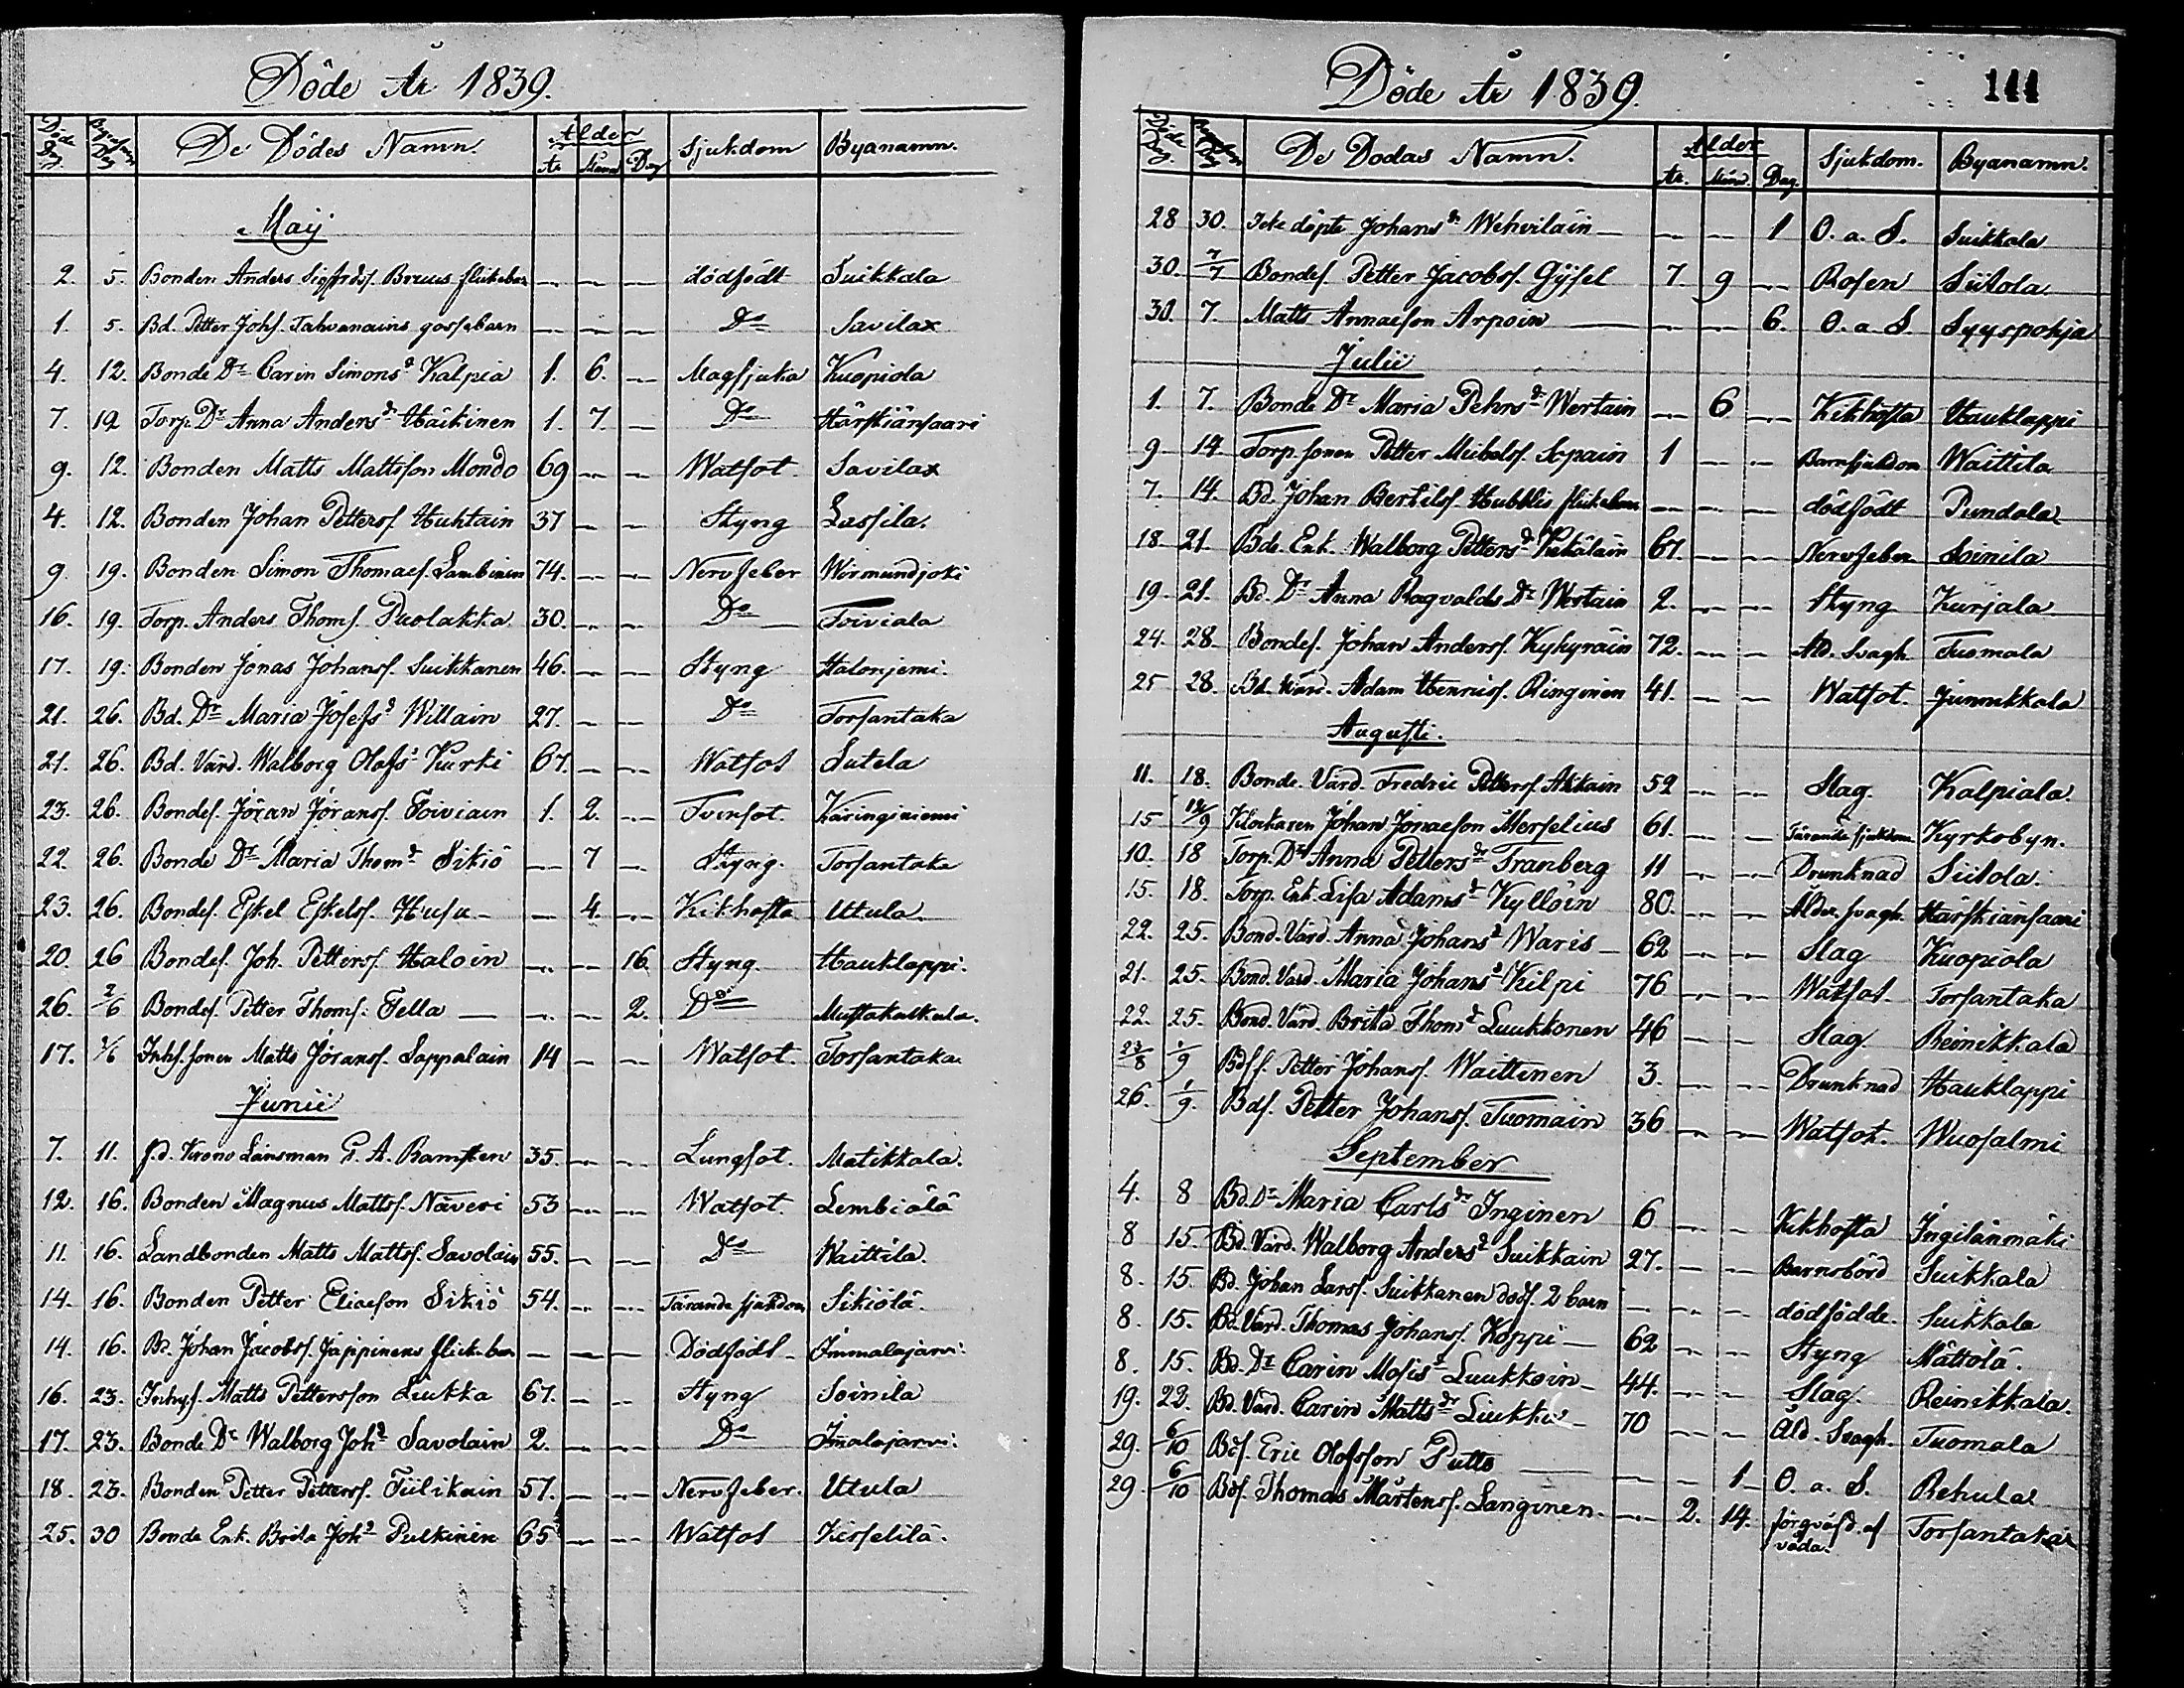 Döde År 1839.
Döde Dag. Begrafnings Dag De Dödes Namn. Ålder År Månad Dag Sjukdom Byanamn.
Maij
2. 5. Bonden Anders Sigfridss. Bruus flickebarn — — — dödfödt Suikkala
1. 5. Bd. Petter Johs. Tahvanains gossebarn — — — Do Savilax
4. 12. Bonde Dr Carin Simonsd Kalpia 1. 6. — Magsjuka Kuopiola
7. 12 Torp. Dr Anna Andersdr Häikinen 1. 7. — Do Härskiänsaari
9. 12. Bonden Matts Mattsson Mondo 69 — — Watsot Savilax
4. 12. Bonden Johan Petterss. Huhtain 37 — — Styng Lassila.
9. 19. Bonden Simon Thomaes. Lambinen 74. — — Nervfeber Wirmundjoki
16. 19. Torp. Anders Thoms. Puolakka 30. — — Do Toiviala
17. 19. Bonden Jonas Johanss. Suikkanen 46. — — Styng Halonjemi.
21. 26. Bd. Dr Maria Josefsd Willain 27. — — Do Torsantaka
21. 26. Bd. Värd. Walborg Olofsd Kurki 67. — — Watsot Sutela
23. 26. Bondes. Jöran Jöranss. Toiviain 1. 2. — Tvinsot. Käringiniemi
22. 26. Bonde Dr Maria Thomd Sikiö — 7 — Styng. Torsantaka
23. 26. Bondes. Eskel Eskelss. Husu — — 4. — Kikhosta Utula
20. 26 Bondes. Joh. Petterss. Haloin — — 16. Styng. Hauklappi.
26. 2/6 Bondes. Petter Thoms. Tella — — — 2. Do Mustakalkala.
17. 2/6 Inhs. sonen Matts Jöranss. Lappalain 14 — — Watsot. Torsantaka.
Junii
7. 11. f.d. Krono Länsman G. A. Ramsten 35. — — Lungsot. Matikkala.
12. 16. Bonden Magnus Mattss. Näveri 53 — — Watsot. Lembiälä
11. 16. Landbonden Matts Mattss. Savolain 55. — — Do Waittila.
14. 16. Bonden Petter Eliaeson Sikiö 54. — — Tärande sjukdom Sikiölä.
14. 16. Bd. Johan Jacobss. Jäppinens flickebarn — — — Dödfödt — Immalajärvi.
16. 23. Inhys. Matts Pettersson Liukka 67. — — Styng Soinila
17. 23. Bonde Dr Walborg Johd Savolain 2. — — Do Imalajarvi.
18. 23. Bonden Petter Petterss. Tiilikain 57. — — Nervfeber. Utula
25. 30 Bonde Enk. Brita Johd Pulkinen 65 — — Watsot Kirselilä.
Döde År 1839.
144
Döde Dag Begrafnings Dag De Dödas Namn. Ålder År. Månd. Dag. Sjukdom. Byanamn.
28 30. Icke döpte Johansdr Wehviläin — — — 1 O. a. S. Suikkala
30. 7/7 Bondes. Petter Jacobss. Gijsel 7. 9 — Rosen Siitola.
30. 7. Matts Annaeson Arpoin — — — 6. O. a S. Syyspohja
Julii
1. 7. Bonde Dr Maria Pehrsdr Wertain — 6 — Kikhosta Hauklappi
9 14. Torp. sonen Petter Mickelss. Sopain 1 — — Barnsjukdom Waittila
7. 14. Bd. Johan Bertilss. Hubblis flickebarn — — — dödfödt Pundala
18. 21. Bde. Enk. Walborg Pettersdr Kekäläin 67. — — Nervfeber Soinila
19. 21. Bd. Dr Anna Ragvalds Dr Wertain 2. — — Styng Kurjala
24. 28. Bondes. Johan Anderss. Kykyräin 72. — — Ald. Svagh Tuomala
25 28. Bd. Värd. Adam Henricss. Ringinen 41. — — Watsot. Junnikkala
Augusti.
11. 18. Bonde. Värd. Fredric Petterss. Akkain 52 — — Slag. Kalpiala.
15 12/9 Klockaren Johan Jonaeson Merselius 61. — — Tärande sjukdom Kyrkobyn.
10. 18 Torp. Dr Anna Pettersdr Tranberg 11 — — Drunknad Siitola.
15. 18. Torp. Enk. Lisa Adamsdr Kyllöin 80. — — Ålder. svagh. Härskiänsaari
22. 25. Bond. Värd. Anna Johansd Waris — 62 — — Slag Kuopiola
21. 25. Bond. Värd. Maria Johansd Kilpi 76 — — Watsot. Torsantaka
22. 25. Bond. Värd. Brita Thomd Luukkonen 46 — — Slag Reinikkala
23/8 1/9 Bdss. Petter Johanss. Waittinen 3. — — Drunknad Hauklappi
26. 1/9. Bds. Petter Johanss. Tuomain 36 — — Watsot. Wuosalmi
September
4. 8 Bd. Dr Maria Carlsdr Inginen 6 — — Kikhosta Ingilänmäki
8 15. Bd. Värd. Walborg Andersd Suikkain 27. — — Barnsbörd Suikkala
8. 15. Bd. Johan Larss. Suikkanen dödf. 2 barn — — — dödfödde. Suikkala
8. 15. Bd. Värd. Thomas Johanss. Koppi — 62 — — Styng Mättölä.
8. 15. Bd. Dr Carin Mosisd Luukkoin — 44. — — Slag. Reinikkala.
19. 22. Bd. Värd. Carin Mattsdr Liukko — 70 — — Åld. Svagh. Tuomala
29. 6/10 Bds. Eric Olofsson Putto — — — 1 — O. a. S. Rehula
29. 6/10 Bds. Thomas Mårtenss. Langinen. — 2. 14. förqväfd. af våda. Torsantaka